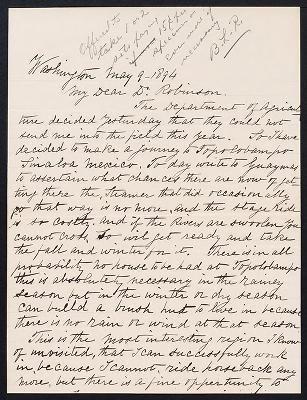 Offered to
take 1 or 2
sets for
15¢ per
specimen or
even more if
necessary
B.L.R.
Washington May 9-1894
My Dear Dr. Robinson.
The Department of Agricul-
ture decided yesterday that they could not
send me into the field this year. So I have
decided to make a journey to Topolobampo
Sinaloa Mexico. To day write to Guaymas
to ascertain what chances there are now of get-
ting there the Steamer that did occasionally
go that way is no more, and the stage ride
is so costly. and if the Rivers are swoolen you
cannot cross, so will get ready and take
the fall and winter for it. There is in all
probability no house to be had at Topolobampo
this is absolutely necessary in the rainey
season but in the winter or dry season
can build a brush hut to live in because
there is no rain or wind at that season
This is the most interesting region I know
of unvisited, that I can successfully work
in because I cannot ride horseback any
more, but there is a fine opportunity to